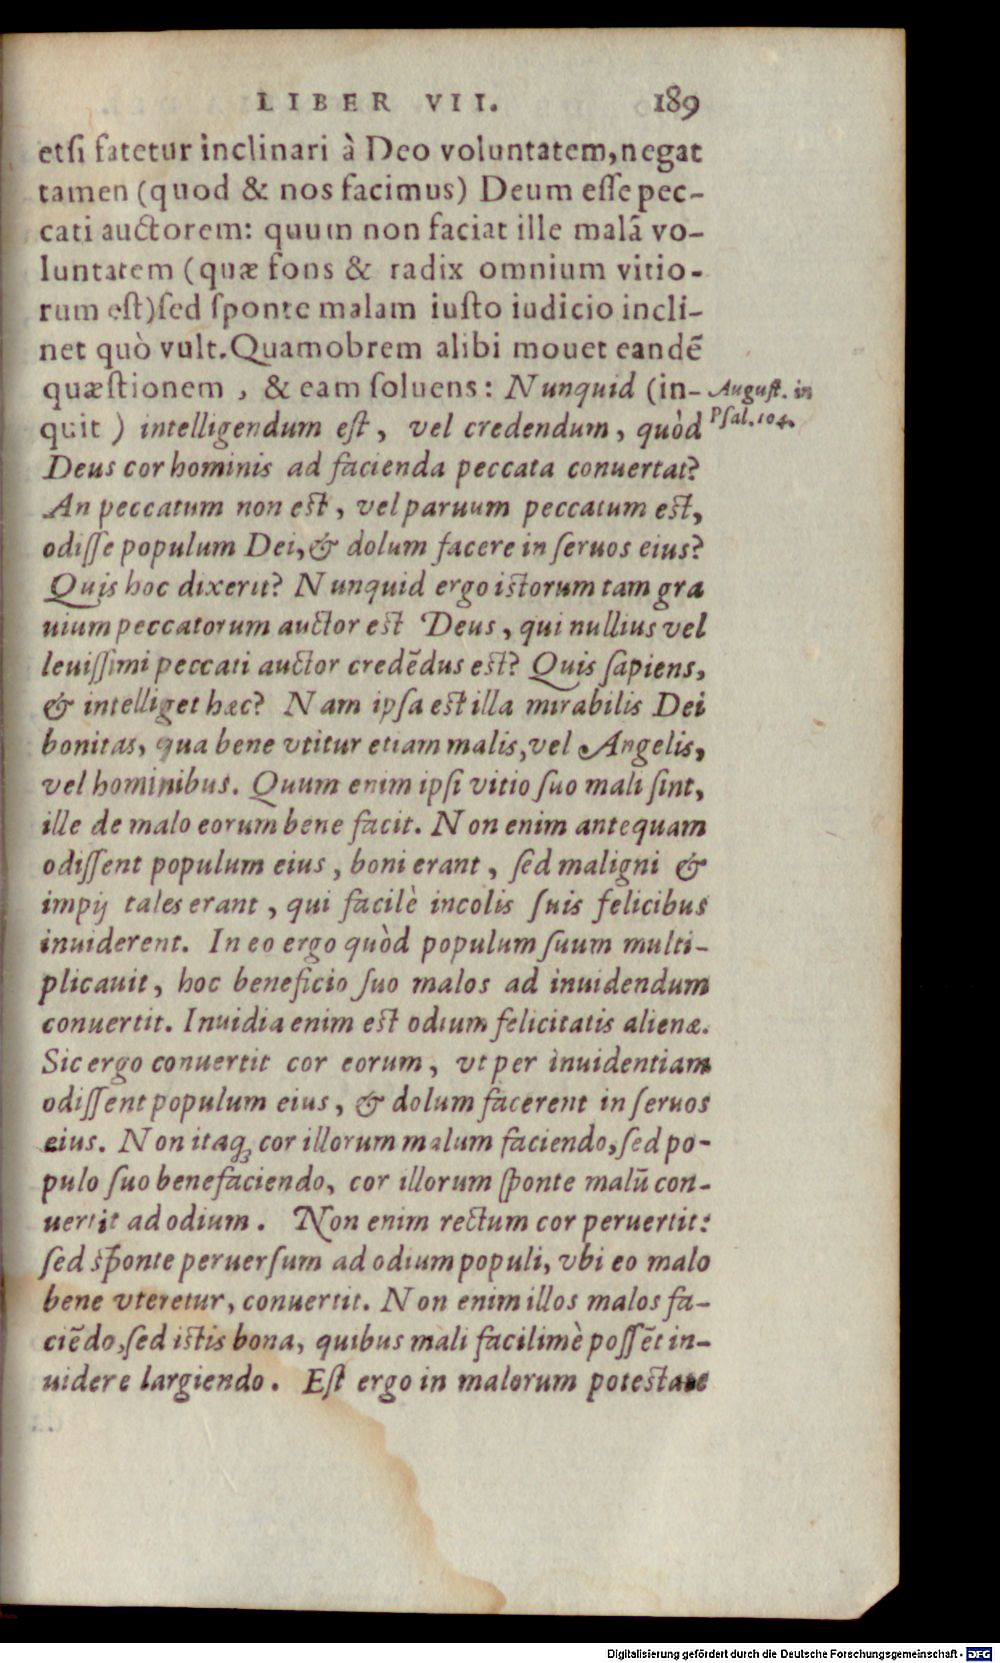 LIBER VII. 189
etſi fatetur inclinari à Deo voluntatem, negat
tamen (quod & nos facimus) Deum eſſe pec-
cati auctorem: quum non faciat ille malã vo-
luntatem (quæ fons & radix omnium vitio-
rum eſt) ſed ſponte malam iuſto iudicio incli-
net quò vult. Quamobrem alibi mouet eandẽ
quæſtionem, & eam ſoluens: Nunquid (in-
quit) intelligendum eſt, vel credendum, quòd
Auguſt. in
Pſal. 104.
Deus cor hominis ad facienda peccata conuertat?
An peccatum non eſt, vel paruum peccatum eſt,
odiſſe populum Dei, & dolum facere in ſeruos eius?
Quis hoc dixerit? Nunquid ergo iſtorum tam gra
uium peccatorum auctor eſt Deus, qui nullius vel
leuiſſimi peccati auctor credẽdus eſt? Quis ſapiens,
& intelliget hæc? Nam ipſa eſt illa mirabilis Dei
bonitas, qua bene vtitur etiam malis, vel Angelis,
vel hominibus. Quum enim ipſi vitio ſuo mali ſint,
ille de malo eorum bene facit. Non enim antequam
odiſſent populum eius, boni erant, ſed maligni &
impij tales erant, qui facilè incolis ſuis felicibus
inuiderent. In eo ergo quòd populum ſuum multi-
plicauit, hoc beneficio ſuo malos ad inuidendum
conuertit. Inuidia enim eſt odium felicitatis alienæ.
Sic ergo conuertit cor eorum, vt per inuidentiam
odiſſent populum eius, & dolum facerent in ſeruos
eius. Non itaq; cor illorum malum faciendo, ſed po-
pulo ſuo benefaciendo, cor illorum ſponte malũ con-
uertit ad odium. Non enim rectum cor peruertit:
ſed ſponte peruerſum ad odium populi, vbi eo malo
bene vteretur, conuertit. Non enim illos malos fa-
ciẽdo, ſed iſtis bona, quibus mali facilimè poſſẽt in-
uidere largiendo. Eſt ergo in malorum poteſtate
Digitalisierung gefördert durch die Deutsche Forschungsgemeinschaft - DFG